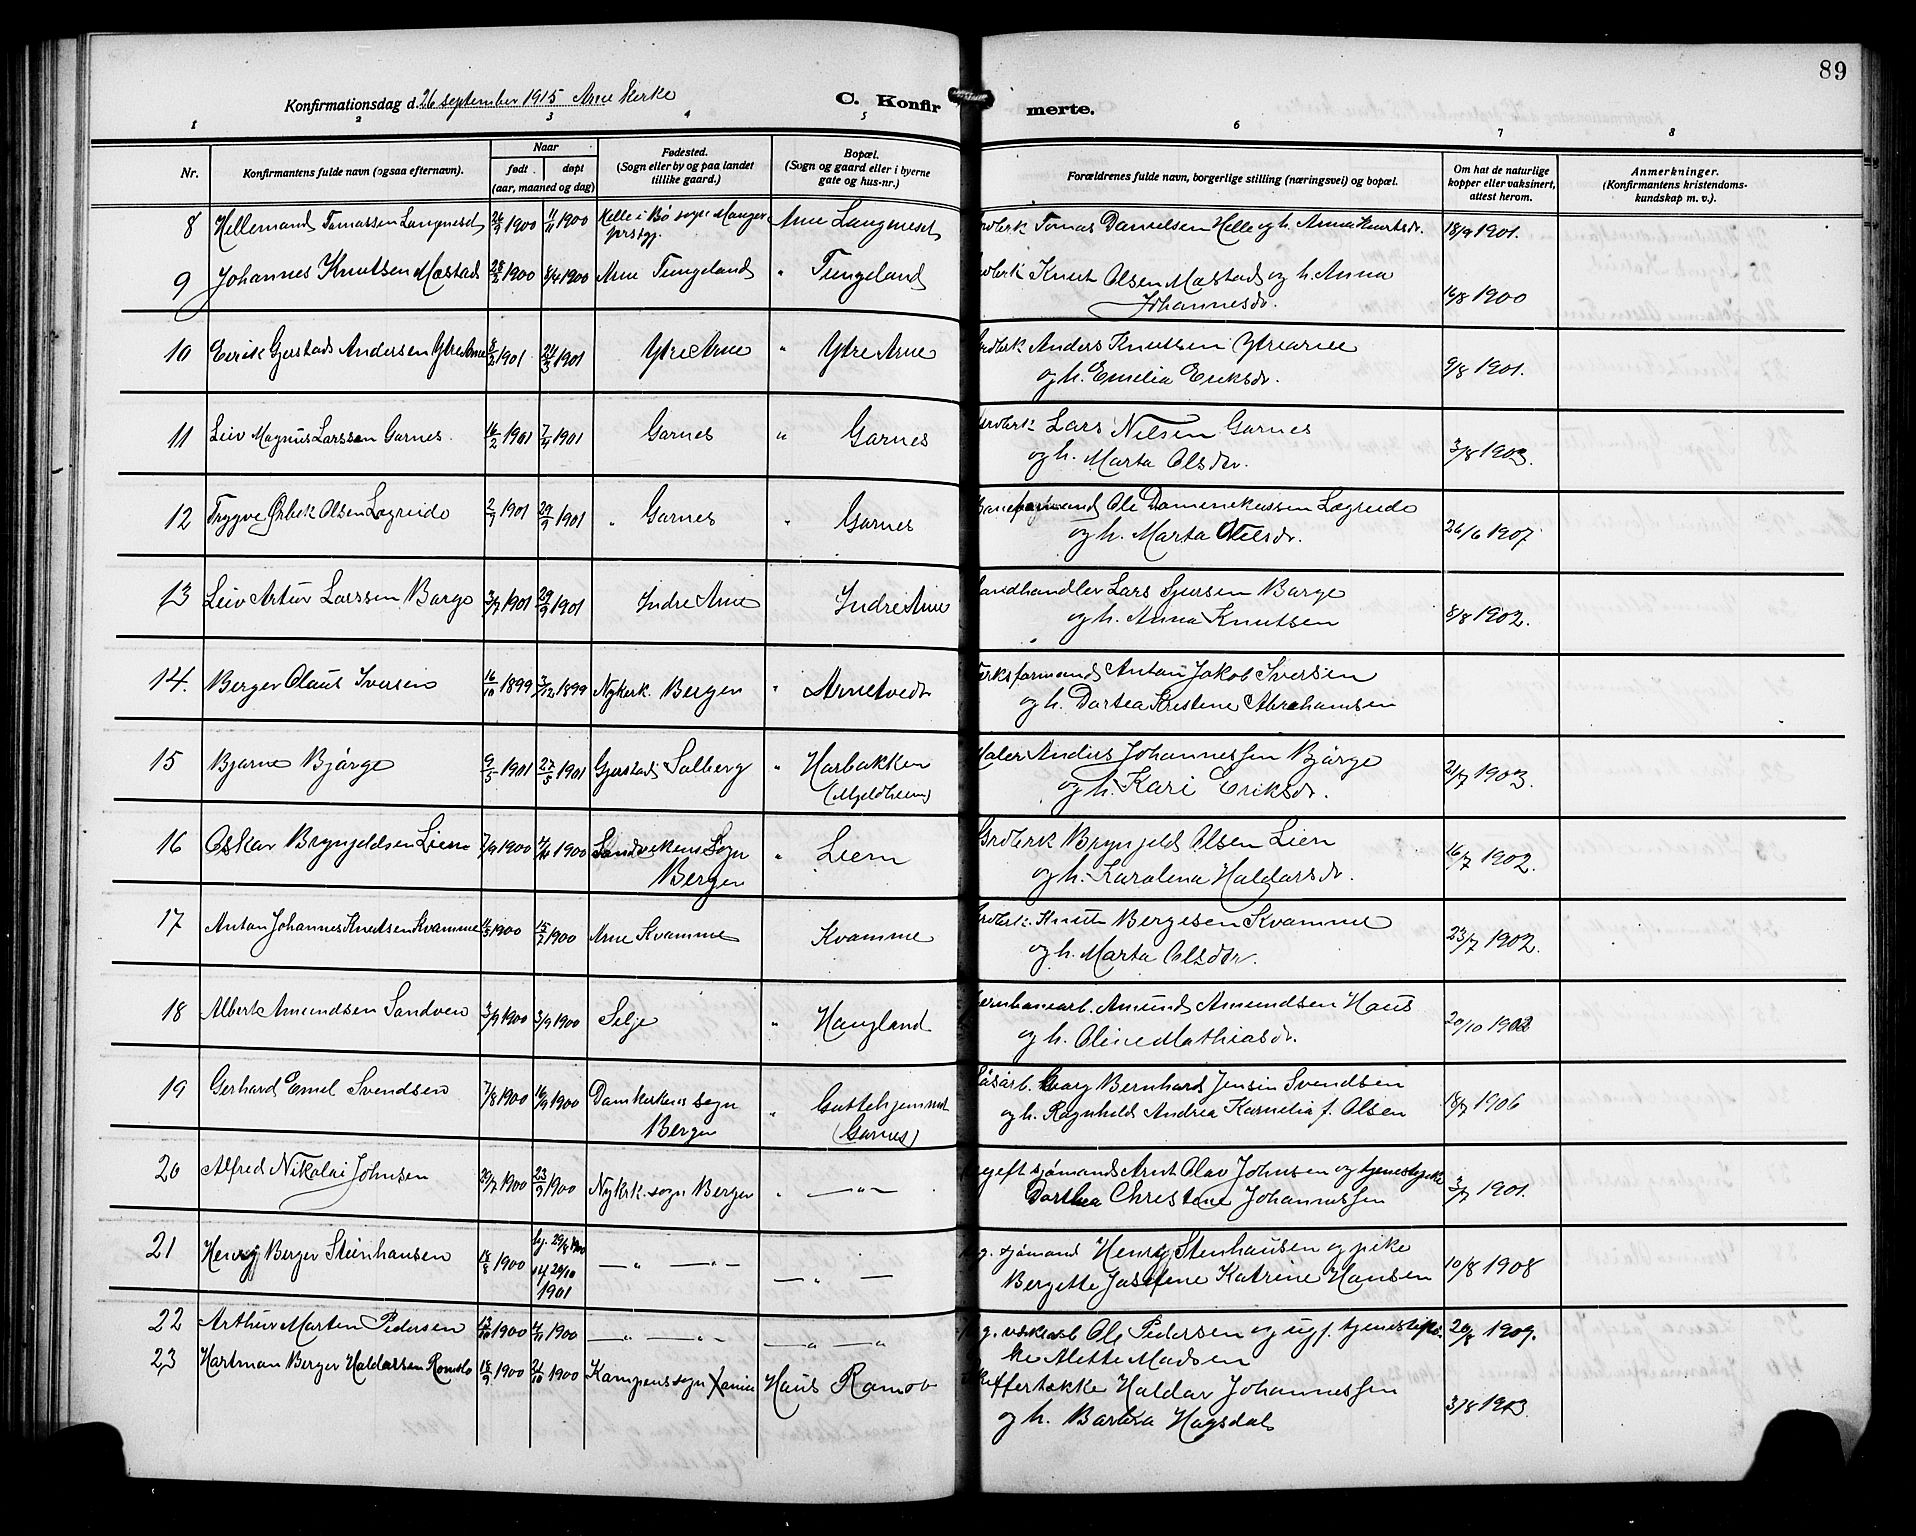 89
Konfirmationsdag d. 26 september 1915 Arne kirke C. Konfir merte.
1 2 3 4 5 6 7 8
Nr. Konfirmantens fulde navn (ogsaa efternavn). Naar født døpt (aar, maaned og dag) Fødested. (Sogn eller by og paa landet tillike gaard.) Bopæl. (Sogn og gaard eller i byerne gate og hus-nr.) Forældrenes fulde navn, borgerlige stilling (næringsvei) og bopæl. Om hat de naturlige kopper eller vaksinert, attest herom. Anmerkninger. (Konfirmantens kristendoms-kundskap m. v.).
8 Hellemand Tomassen Langeneset 26/9 1900 11/11 1900 Helle i Bø sogn Manger prstgj. Arne Langeneset Grdbrk Tomas Danielsen Helle og h. Anna Knutsdr. 18/9 1901.
9 Johannes Knutsen Mæstad 28/2 1900 8/4 1900 Arne Tungeland " Tungeland Grdbrk Knut Olsen Mæstad og h. Anna
Johannesdr. 16/8 1900
10 Eerik Gjerstad Andersen Ytre Arne 8/2 1901 24/3 1901 Ytre Arne " Ytre Arne Grdbrk Anders Knutsen Ytrearne
og h. Emelia Eriksdr. 9/8 1901.
11 Leiv Magnus Larssen Garnes. 16/2 1901 7/4 1901 Garnes " Garnes Grdbrk Lars Nilsen Garnes
og h. Marta Olsdtr. 3/8 1903.
12 Trygve Ørbek Olsen Lægreide 2/7 1901 29/9 1901 " Garnes " Garnes Baneformand Ole Daminikussen Lægreide
og h. Marta Nilsdr. 26/6 1907
13 Leiv Artur Larssen Barge 3/7 1901 29/9 1901 Indre Arne Indre Arne Landhandler Lars Sjursen Barge
og h. Anna Knutsen 8/8 1902.
14. Berger Olaus Iversen 16/10 1899 3/12 1899 Nykerk. Bergen " Arnetvedt Verksformand Anton Jakob Iversen
og h. Dortea Kristene Abrahamsen
15 Bjarne Bjørge 9/5 1901 27/5 1901 Gjerstad Solberg " Harbakken
(Mjeldheim) Maler Anders Johannessen Bjørge
og h. Kari Eriksdr. 21/7 1903.
16 Oskar Brynjeldsen Lien 7/9 1900 1900 Sandvikens Sogn
Bergen " Lien Grdbrk Brynjeld Olsen Lien
og h. Karolina Haldorsdr. 16/7 1902.
17 Anton Johannes Knutsen Kvamme 1900 15/7 1900 Arne Kvamme Kvamme Grdbrk. Knut Bergesen Kvamme
og h. Marta Olsdtr. 23/7 1902.
18 Albert Amundsen Sandven 3/9 1900 3/9 1900 Selje " Haugland Jernbanearb. Amund Amundsen Haus
og h. Oline Mathiasdr. 20/10 1902
19 Gerhard Emel Svendsen 7/8 1900 16/9 1900 Domkirkens sogn
Bergen " Guttehjemmet
(Garnes) Løsarb. Georg Bernhard Jensen Svendsen
og h. Ragnhild Andrea Kornelia f. Olsen 18/7 1906
20 Alfred Nikolai Johnsen 20/7 1900 23/9 1900 Nykrk. sogn Bergen " — " — Ugeft sjømand Arnt Olav Johnsen og tjenestepike
Dorthea Christene Johannessen 3/7 1901.
21 Henry Berger Steinhausen 18/8 1900 hj. 29/8 1900
1901 — " — — " — — " — ug. sjømand Henry Stenhausen og pike
Bergette Josefine Katrine Hansen 10/8 1908
22 Arthur Marten Pedersen 13/10 1900 4/11 1900 — " — — " — — " — " Ug. Ole Pedersen og ugf. tjenestepi-
ke Alette Madsen 20/8 1909.
23 Hartman Berger Haldorssen Romslo 18/9 1900 21/10 1900 Kampens sogn Haus Haldor Johannessen
og h. Barbra Hagsdal 3/8 1903.